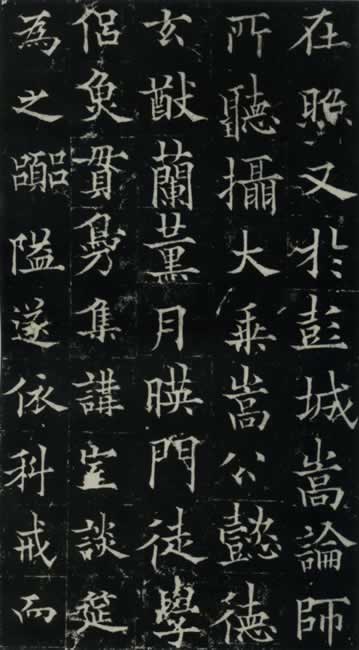 在照又於彭城嵩論師
所聽攝大乗嵩公懿德
玄猷蘭薰月暎門徒學
侶魚貫鳧集講室談筵
為之囂隘遂依科戒而